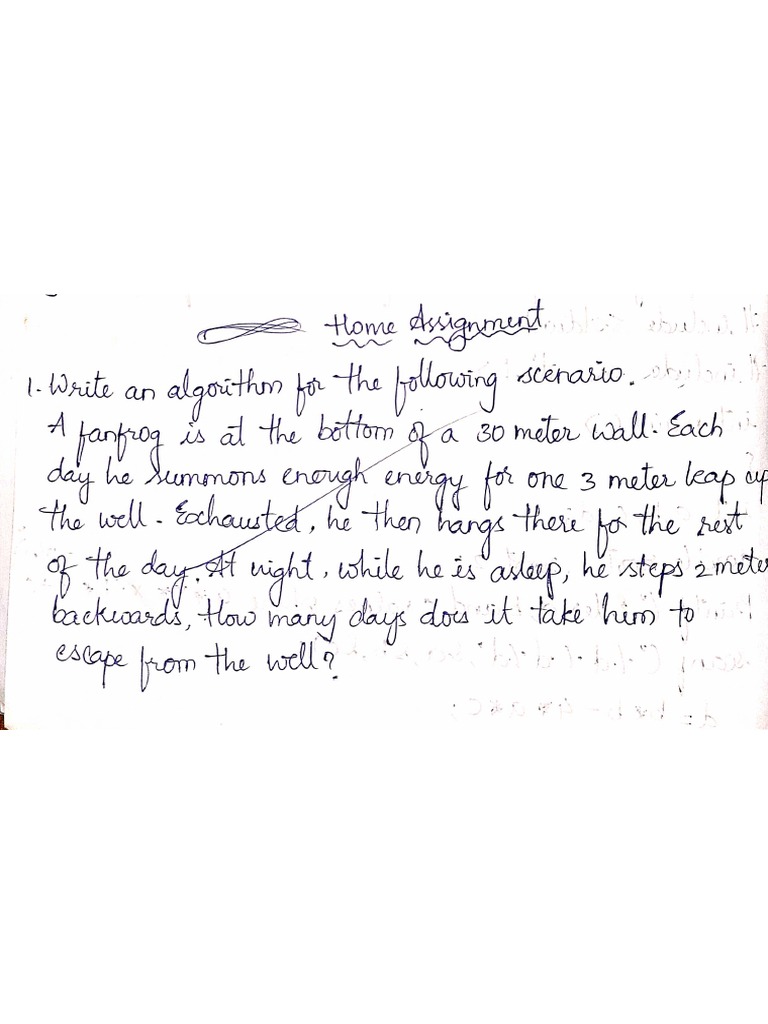 Home Assignment
1. Write an algorithm for the following scenario.
A fanfrog is at the bottom of a 30 meter wall. Each
day he summons enough energy for one 3 meter leap up
the well. Exchausted, he then hangs there for the rest
of the day. At night, while he is asleep, he steps 2 meter
backwards, How many days does it take him to
escape from the well?